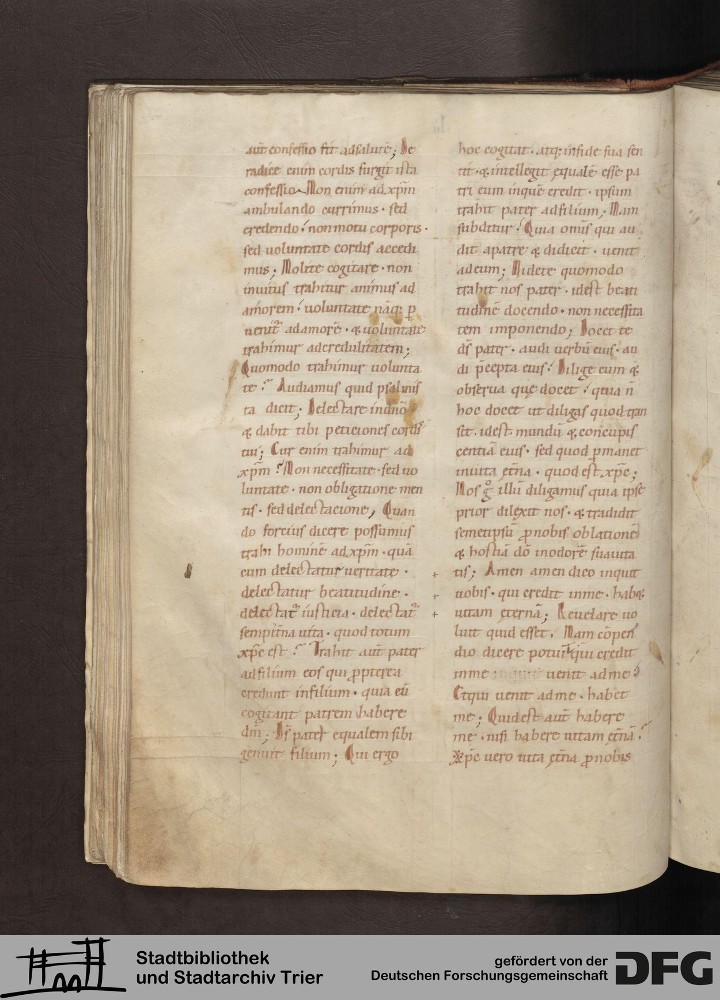 aut̄ confessio fit adsalutē; De
radice enim cordis surgit ista
confessio. Non enim ad xp̄m
ambulando currimus · sed
credendo · non motu corporis ·
sed voluntate cordis accedi
mus; Nolite cogitare · non
invitus trahitur animus ad
amorem · voluntate nāq; p
venit̄ ad amorē · & voluntate
trahimur ad credulitatem;
Quomodo trahimur volunta
te? Audiamus quid psalmis
ta dicit; Delectare in dn̄o
& dabit tibi peticiones cordis
tui; Cur enim trahimur ad
xp̄m? Non necessitate · sed vo
luntate · non obligatione men
tis · sed delectacione, Quan
do forcius dicere possumus
trahi hominē ad xp̄m · quā
cum delectatur veritate ·
delectatur beatitudine ·
delectat̄ iusticia · delectat̄
sempit̄na vita · quod totum
xp̄c est? Trahit aut̄ pater
ad filium eos qui p̄pterea
credunt in filium · quia eū
cogitant patrem habere
dm̄; Ds̄ pater equalem sibi
genuit filium; Qui ergo
hoc cogitat · atq; in fide sua sen
tit · & intellegit equalē esse pa
tri eum inquē credit · ipsum
trahit pater ad filium, Nam
subditur, Quia omīs qui au
dit a patre & didicit · venit
ad eum; Videte quomodo
trahit nos pater · id est beati
tudinē docendo · non necessita
tem imponendo; Docet te
ds̄ pater · audi verbū eius · au
di p̄cepta eius; Dilige eum &
observa que docet · qua n̄
hoc docet ut diligas quod tran
sit · id est mundū & concupis
centiā eius · sed quod p̄manet
in vita et̄na · quod est xp̄c;
Nos g° illū diligamus quia ipse
prior dilexit nos · & tradidit
semetipsū p̄ nobis oblationē
& hostiā dō in odorē suavita
tis; Amen amen dico inquit
vobis · qui credit in me · habet
vitam eternā; Revelare vo
luit quid esset, Nam cōpen
dio dicere potuit qui credit
in me venit ad me
Et qui venit ad me · habet
me; Quid est aut̄ habere
me · nisi habere vitam et̄nā ·
Xp̄c vero vita et̄na p̄ nobis
Stadtbibliothek
und Stadtarchiv Trier
gefördert von der
Deutschen Forschungsgemeinschaft
DFG